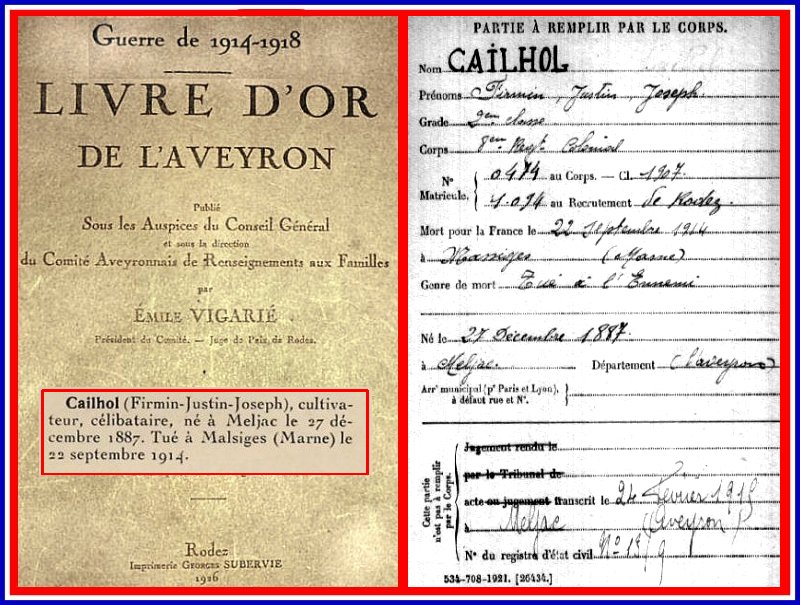 Guerre de 1914-1918
LIVRE D'OR
DE L'AVEYRON
Publié
Sous les Auspices du Conseil Général
et sous la direction
du Comité Aveyronnais de Renseignements aux Familles
par
ÉMILE VIGARIÉ
Président du Comité. — Juge de Paix de Rodez.
Cailhol (Firmin-Justin-Joseph), cultiva-
teur, célibataire, né à Meljac le 27 dé-
cembre 1887. Tué à Malsiges (Marne) le
22 septembre 1914.
Rodez
Imprimerie GEORGES SUBERVIE
1926
PARTIE À REMPLIR PAR LE CORPS.
Nom CAILHOL
Prénoms Firmin, Justin, Joseph
Grade 2eme classe
Corps 8em Regt Colonial
N° 0474 au Corps. — Cl. 1907
Matricule. 1.094 au Recrutement de Rodez
Mort pour la France le 22 septembre 1914
à Massiges (Marne)
Genre de mort Tué à l'Ennemi
Né le 27 Décembre 1887
à Meljac Département (l'aveyron)
Arrt municipal (pr Paris et Lyon),
à défaut rue et N°.
Cette partie
n'est pas à remplir
par le Corps.
Jugement rendu le
par le Tribunal de
acte ou jugement transcrit le 24 Février 1915
à Meljac (Aveyron)
N° du registre d'état civil
534-708-1921. [26434.]